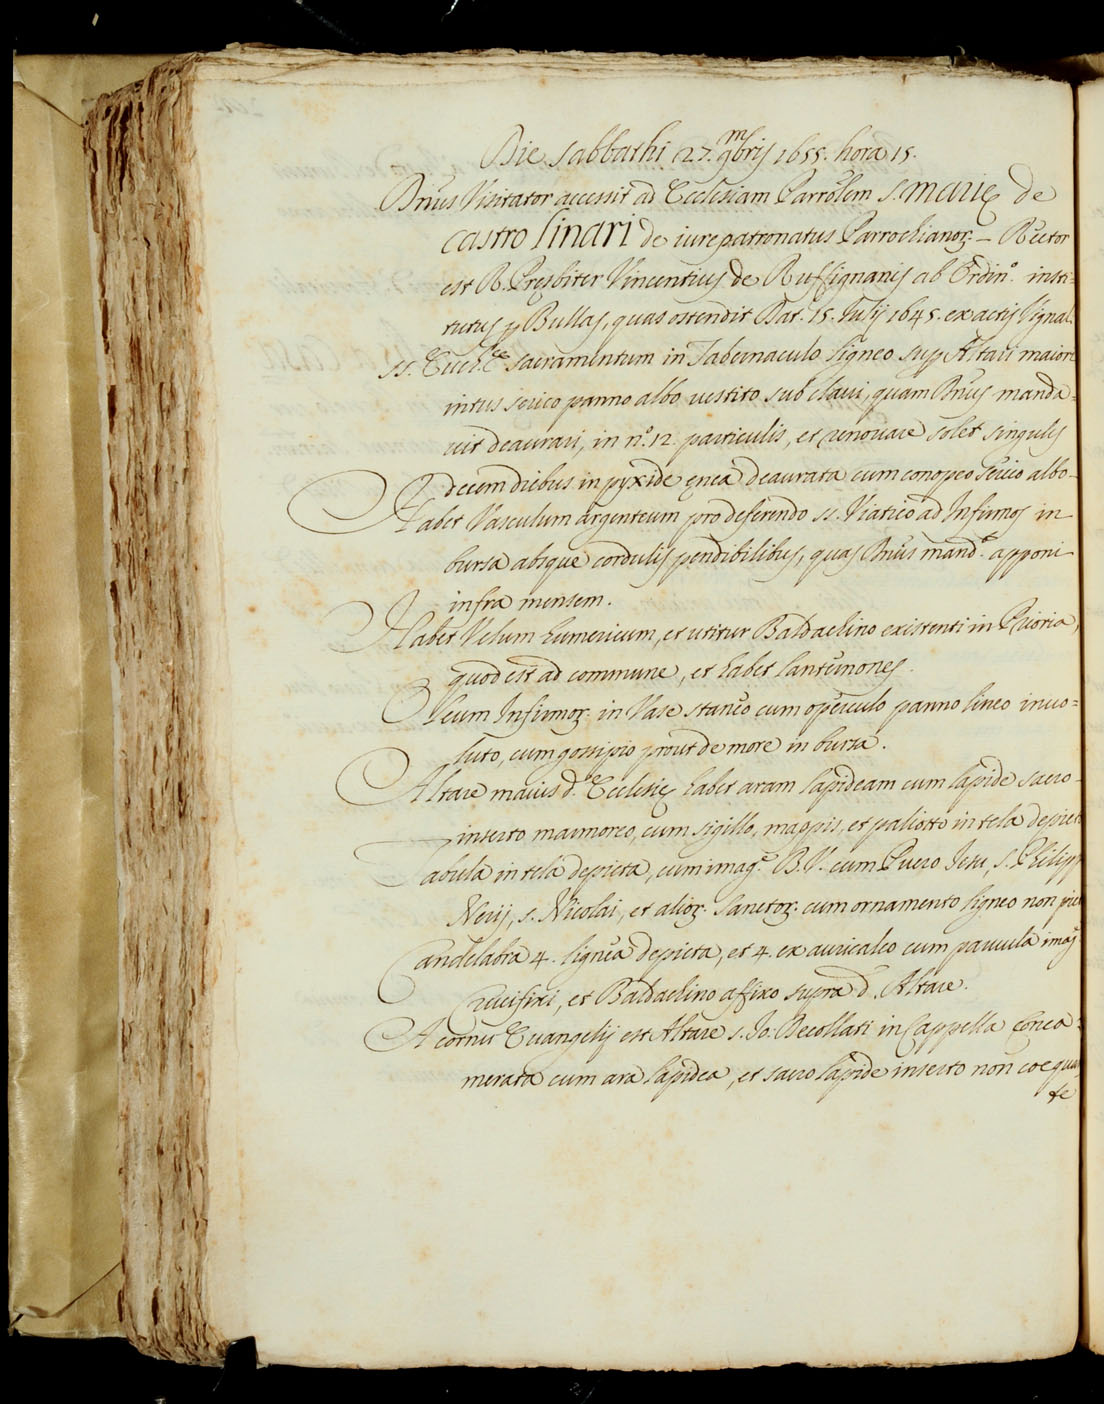 Die Sabbathi 27. 9mbris 1655. hora 15.
Dnus Visitator accessit ad Ecclesiam Parrolem S. Marię de
castro linari de iurepatronatus Parrochianoꝝ. – Rector
est R. Pręsbiter Vincentius de Ruffignanis ab Ordino. insti-
tutus p Bullas, quas ostendit Dat. 15. Julij 1645. ex actis Signal.
SS. Euch.ce sacramentum in Tabernaculo ligneo sup Altari maiori
intus serico panno albo vestito sub clavi, quam Dnus manda-
vit deaurari, in no. 12. particulis, et renovare solet singulis
decem diebus in pyxide ęnea deaurata cum conopeo serico albo-
Habet Vasculum argenteum pro deferendo SS. Viatico ad Infirmos in
bursa absque cordulis pendibilibus, quas Dnus mand.t apponi
infra mensem.
Habet Velum humericum, et utitur Baldachino existenti in Prioria,
quod est ad commune, et habet lanternones.
Oleum Infirmoꝝ. in Vase stanneo cum operculo panno lineo invo=
luto, cum gossipio prout de more in bursa.
Altare maius d.ę Ecclesię habet aram lapideam cum lapide sacro-
inserto marmoreo, cum sigillo, mappis, et paliotto in tela depicto
Tabula in tela depicta, cum imag.e B. V. cum Puero Jesu, S. Philippi
Nerij, S. Nicolai, et alioꝝ. Sanctoꝝ. cum ornamento ligneo non pict
Candelabra 4. lignea depicta, et 4. ex auricalco cum parvula imag.
Crucifixi, et Baldachino affixo supra d. Altare.
A cornu Evangelij est Altare S. Jo: Decollati in Cappella conca=
merata cum ara lapidea, et sacro lapide inserto non coequa
te